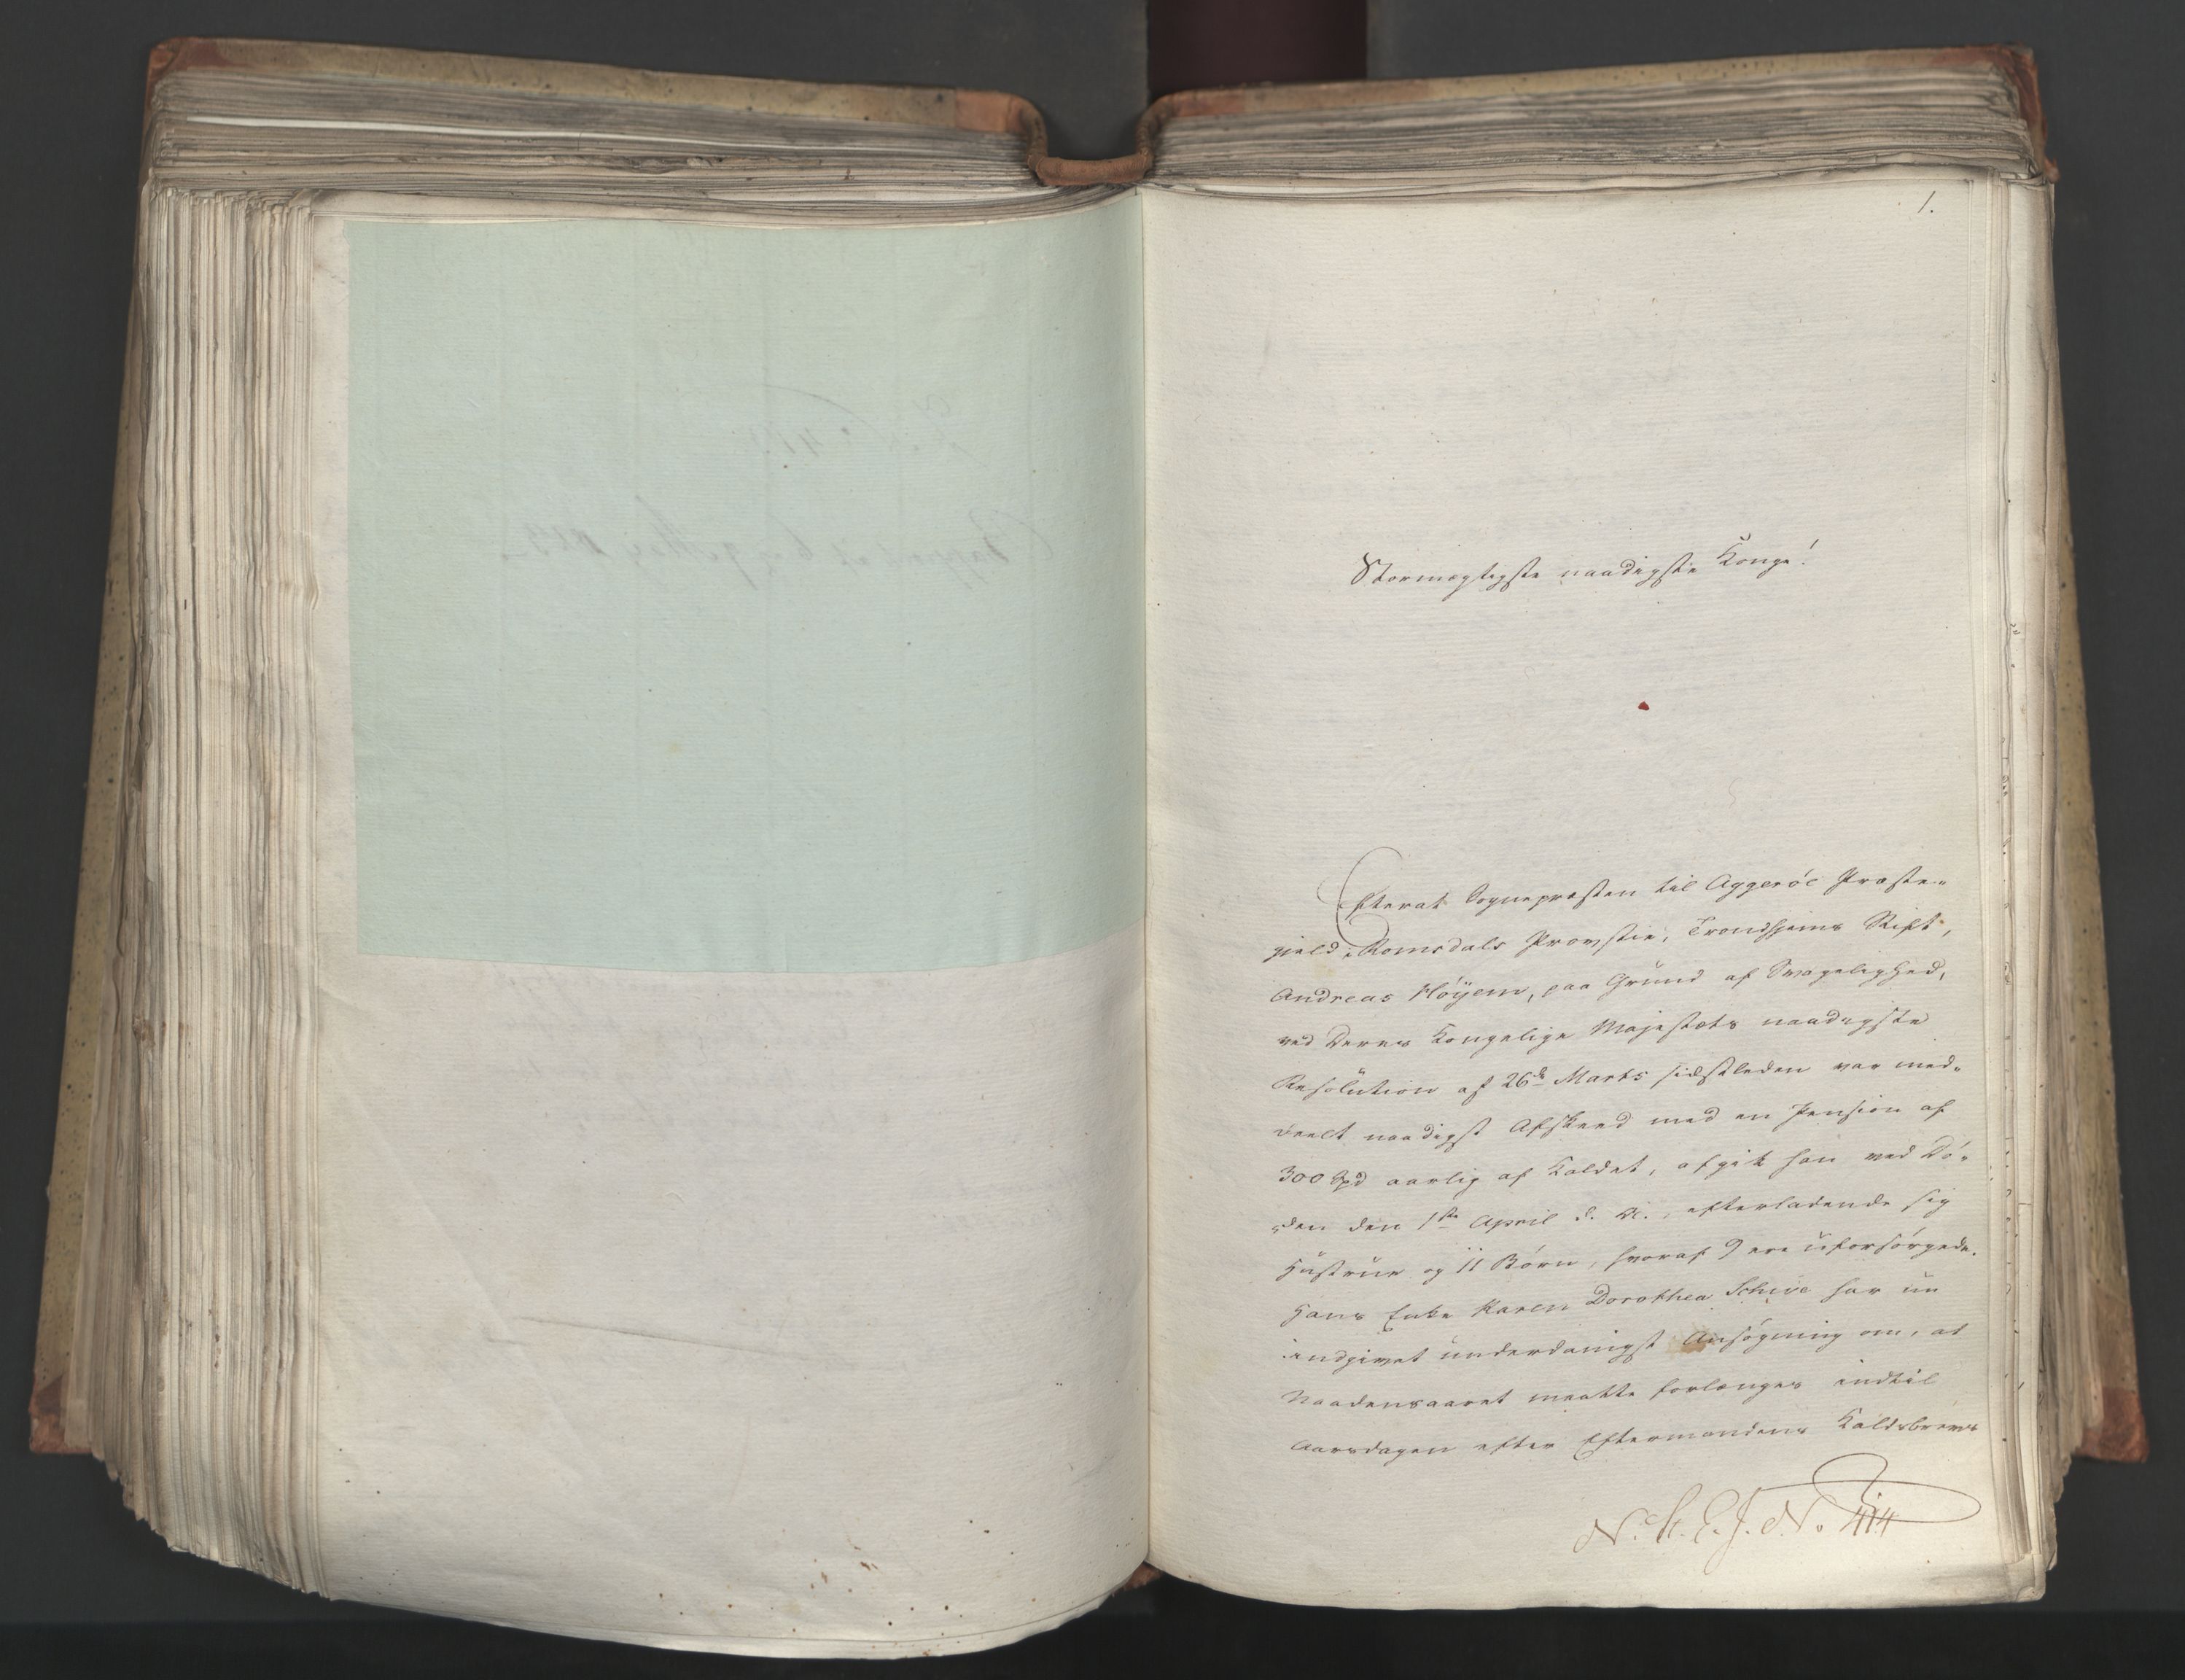 1.
Stormægtigste naadigste Konge!
Efterat Sognepræsten til Aggeröe Præste-
gield i Romsdals Provstie, Trondhjems Stift,
Andreas Höyem, paa Grund af Svagelighed,
ved Deres Kongelige Majestæts naadigste
Resolution af 26de Marts sidstleden var med-
deelt naadigst Afskeed med en Pension af
300 Spd aarlig af Kaldet, afgik han ved Dö-
den den 1ste April d. A., efterladende sig
Hustrue og 11 Börn, hvoraf 9 ere uforsörgede.
Hans Enke Karen Dorothea Schive har nu
indgivet underdanigst Ansögning om, at
Naadensaaret maatte forlænges indtil
Aarsdagen efter Eftermandens Kaldsbrevs
N. St. E. J. No. 414